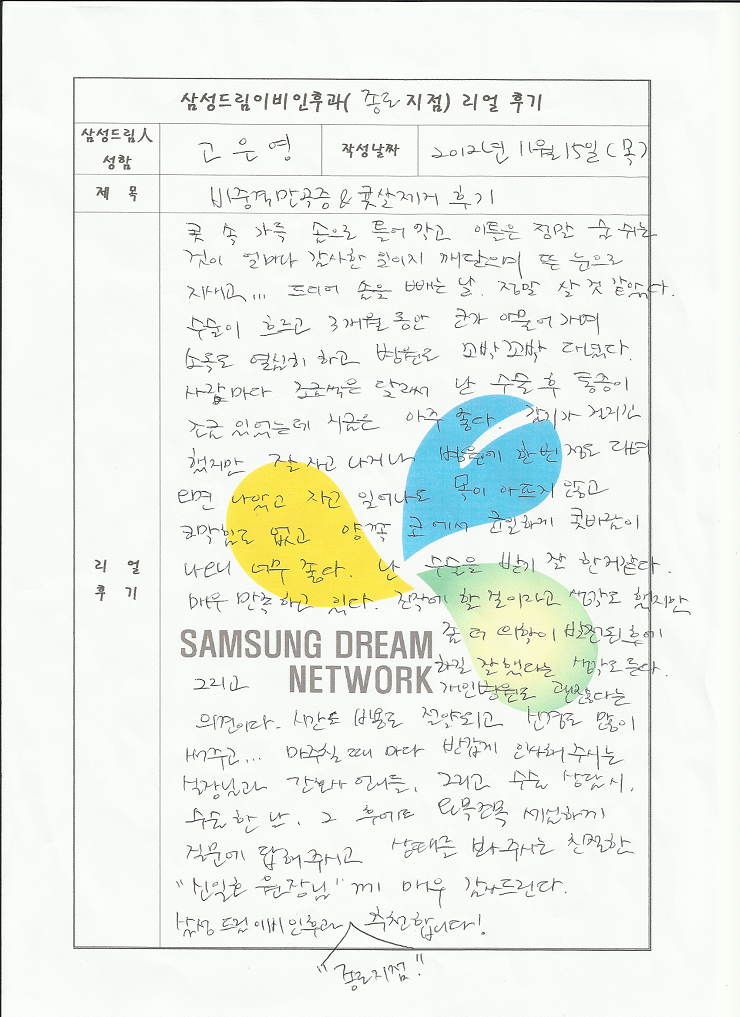 삼성드림이비인후과( 종로 지점) 리얼 후기
삼성드림人 성함
고은영
작성날짜
2012년 11월 15일 (목)
제 목
비중격만곡증 & 콧살제거 후기
리 얼 후 기
콧 속 가득 솜으로 틀어 막고 이틀은 정말 숨 쉬는
것이 얼마나 감사한 일이지 깨달으며 뜬 눈으로
지새고... 드디어 솜을 빼는 날. 정말 살 것 같았다.
수술이 흐르고 3개월 동안 코가 아물어 가며
소독도 열심히 하고 병원도 꼬박꼬박 다녔다.
사람마다 조금씩은 달라서 난 수술 후 통증이
조금 있었는데 지금은 아주 좋다. 감기가 걸리긴
했지만 잘 자고 나거나 병원에 한번 정도 다녀
오면 나았고 자고 일어나도 목이 아프지 않고
코막힘도 없고 양쪽 코에서 균일하게 콧바람이
나오니 너무 좋다. 난 수술을 받기 잘 한거같다.
매우 만족하고 있다. 진작에 할 걸이라고 생각도 했지만
좀 더 의학이 발전된 후에
하길 잘했다는 생각도 든다.
그리고 개인병원도 괜찮다는
의견이다. 시간도 비용도 절약되고 신경도 많이
써주고... 마주칠 때 마다 반갑게 인사해 주시는
실장님과 간호사 언니들, 그리고 수술 상담시,
수술 한 난, 그 후에도 꼬박꼬박 세심하게
질문에 답해주시고 상태를 봐 주시는 친절한
"신일호 원장님" 께 매우 감사드린다.
삼성드림이비인후과 추천합니다!
"종로지점"
SAMSUNG DREAM
NETWORK